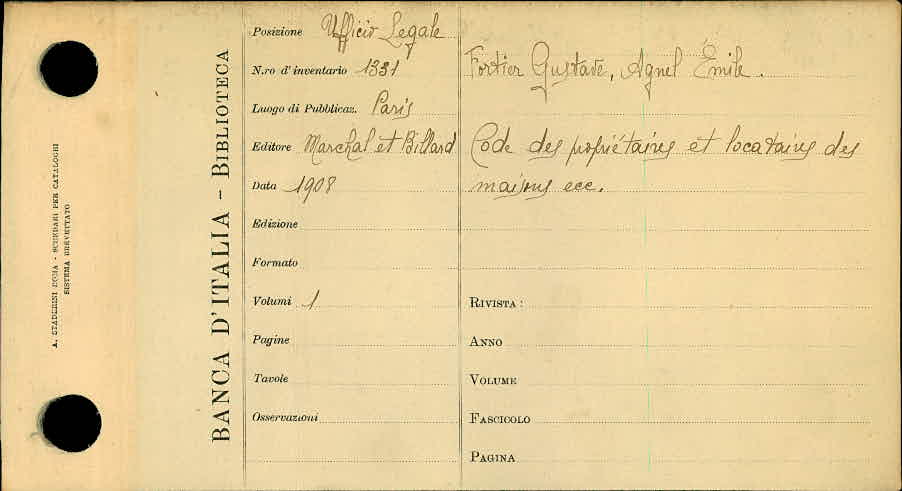 A. STADERINI ROMA - SCHEDARI PER CATALOGHI
SISTEMA BREVETTATO
BANCA D'ITALIA - BIBLIOTECA
Posizione Ufficio Legale
N.ro d'inventario 1331
Luogo di Pubblicaz. Paris
Editore Marchal et Billard
Data 1908
Edizione
Formato
Volumi 1
Pagine
Tavole
Osservazioni
Fortier Gustave, Agnel Émile.
Code des propriétaires et locataires des
maisons ecc.
RIVISTA:
ANNO
VOLUME
FASCICOLO
PAGINA